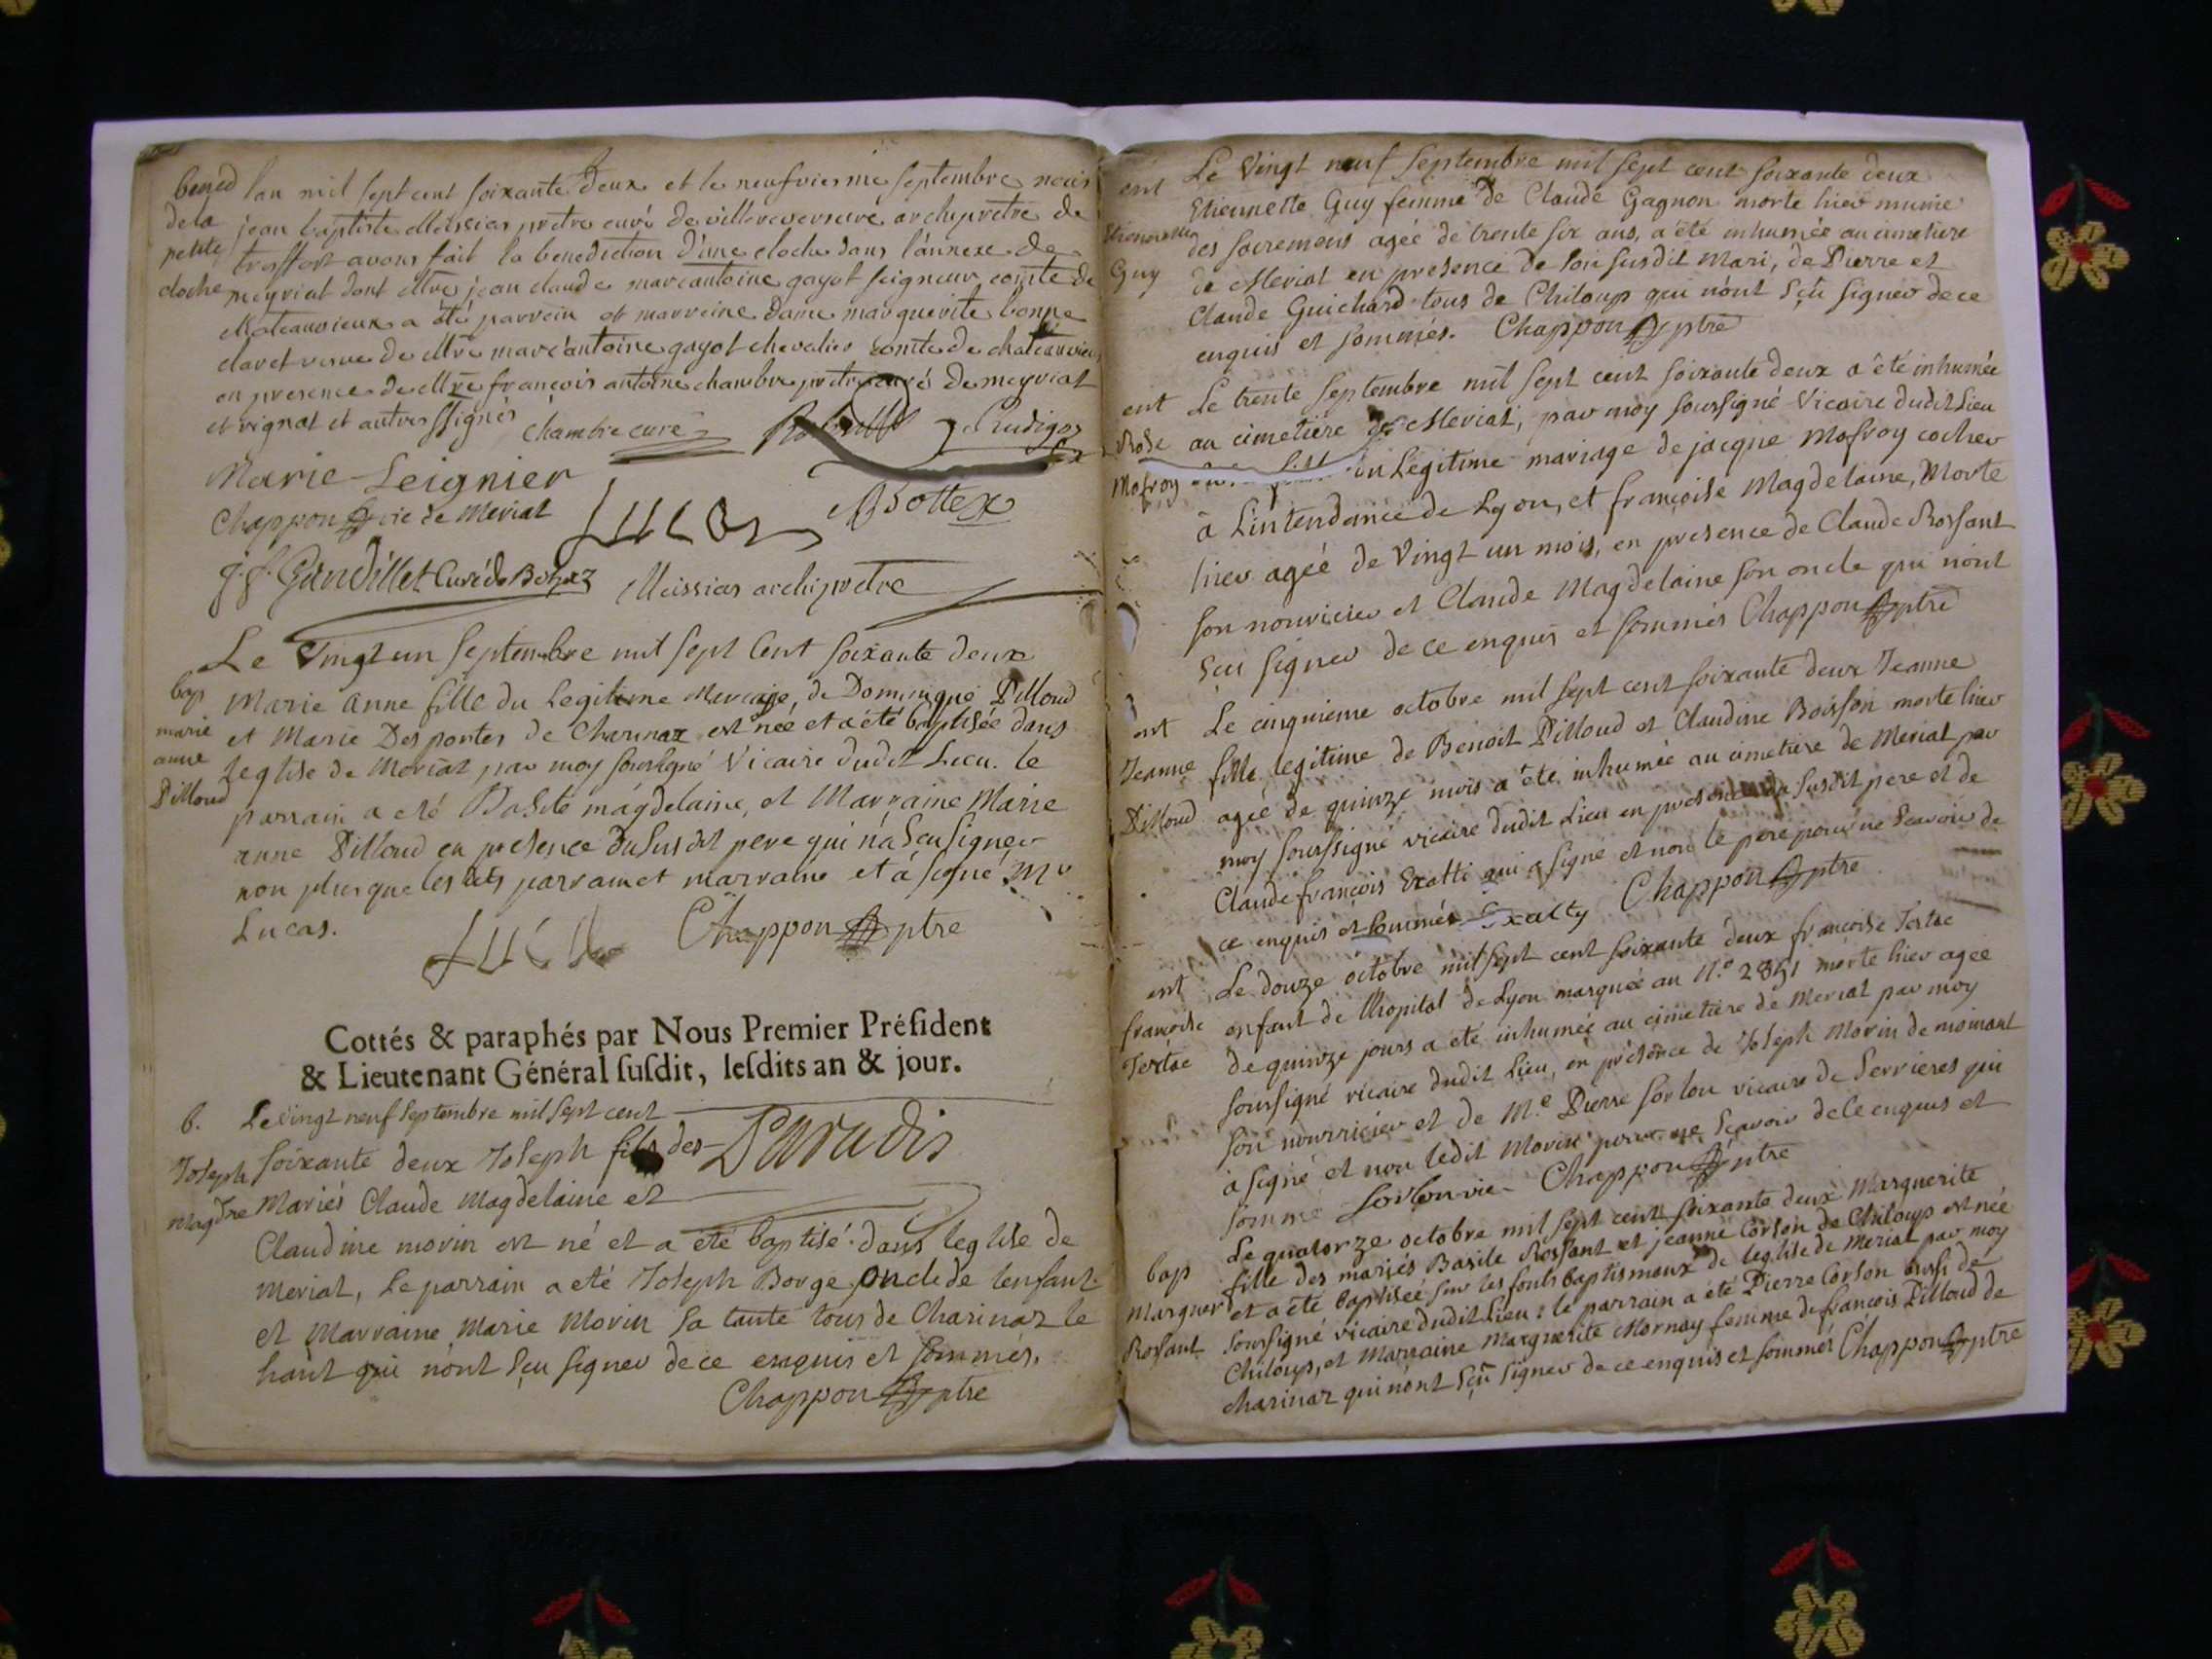 bened lan mil sept cent soixante deux et le neufviesme septembre nous
de la jean baptiste Meissias prêtre curé de villereversure archiprêtre de
petite treffort avons fait la benediction d'une cloche dans l'annexe de
cloche meyriat dont Mre jean claude marcantoine gayot seigneur comte de
Chateauvieux a été parrein et marreine dame marguerite bonne
claret veuve de Mre marc antoine gayot chevalier comte de chateauvieux
en presence de Mre françois antoine chambre prêtre curé de meyriat
et rignat et autres ssignés
chambre curé
Marie Leignier
Chappon vic de Meriat
Lucas
Bottex
Gandillet Curé de Bohaz
Meissias archiprêtre
Le Vingt un septembre mil sept Cent soixante deux
bap Marie anne fille du Legitime Mariage, de Dominique Pilloud
marie et Marie Desportes de Charinaz est née et a été baptisée dans
anne Leglise de Meriat par moy soussigné Vicaire dudit Lieu. le
Pilloud parrain a eté Basile magdelaine, et Marraine Marie
anne Pilloud en presence du susdit pere qui n'a sçeu signer
non plus que les dts parrain et marraine et a signé Mr
Lucas.
Lucas Chappon ptre
Cottés & paraphés par Nous Premier Préſident
& Lieutenant Général ſuſdit, leſdits an & jour.
b. Le vingt neuf septembre mil sept cent
Joseph soixante deux Joseph fils des Paradis
Magdne Mariés Claude Magdelaine et
Claudine morin est né et a eté baptisé dans leglise de
Meriat, Le parrain a eté Joseph Borge oncle de lenfant
et Marraine Marie Morin sa tante tous de Charinaz le
haut qui n'ont sçu signer de ce enquis et sommés.
Chappon ptre
ent Le Vingt neuf septembre mil sept cent soixante deux
Etiennette Guy femme de Claude Gagnon morte hier munie
Etiennette des sacremens agéé de trente six ans, a été inhumée au cimetiere
Guy de Meriat en presence de son susdit Mari, de Pierre et
Claude Guichard tous de Chiloup qui n'ont sçû signer de ce
enquis et sommés. Chappon ptre
ent Le trente septembre mil sept cent soixante deux a été inhumée
Rose au cimetiere de Meriat, par moy soussigné Vicaire dudit Lieu
Mofroy du Légitime mariage de jacque Mofroy cocher
à Lintendance de Lyon, et françoise Magdelaine, Morte
hier agéé de Vingt un mois, en presence de Claude Rossant
son nourricier et Claude Magdelaine son oncle qui n'ont
sçu signer de ce enquis et sommés Chappon ptre
ent Le cinquieme octobre mil sept cent soixante deux Jeanne
Jeanne fille legitime de Benoit Pilloud et Claudine Boisson morte hier
Pilloud ageé de quinze mois a été inhumée au cimetiere de Meriat par
moy soussigné vicaire dudit Lieu en presence du susdit pere et de
Claude françois Exatti qui a signé et non le pere pour ne scavoir de
ce enquis et sommés Exalty Chappon ptre
ent Le douze octobre mil sept cent soixante deux francoise Tertae
francoise enfant de lhopital de Lyon marquée au N.º 2851 morte hier agée
Tertae de quinze jours a eté inhumée au cimetiere de Meriat par moy
soussigné vicaire dudit Lieu, en présence de Joseph Morin de noirant
son nourricier et de M.e Pierre Sorlon vicaire de Serrieres qui
a signé et non ledit Morin pour ne scavoir de ce enquis et
sommé Sorlon vic Chappon ptre
Le quatorze octobre mil sept cent soixante deux Marguerite
bap fille des mariés Basile Rossant et jeanne Corson de Chiloup est née
Marguer et a eté baptisée sur les fonts baptismaux de leglise de Meriat par moy
Rossant soussigné vicaire dudit Lieu: le parrain a eté Pierre Corson aussi de
Chiloup, et Marraine Marguerite Mornay femme de françois Pilloud de
charinaz qui n'ont sçû signer de ce enquis et sommés Chappon ptre